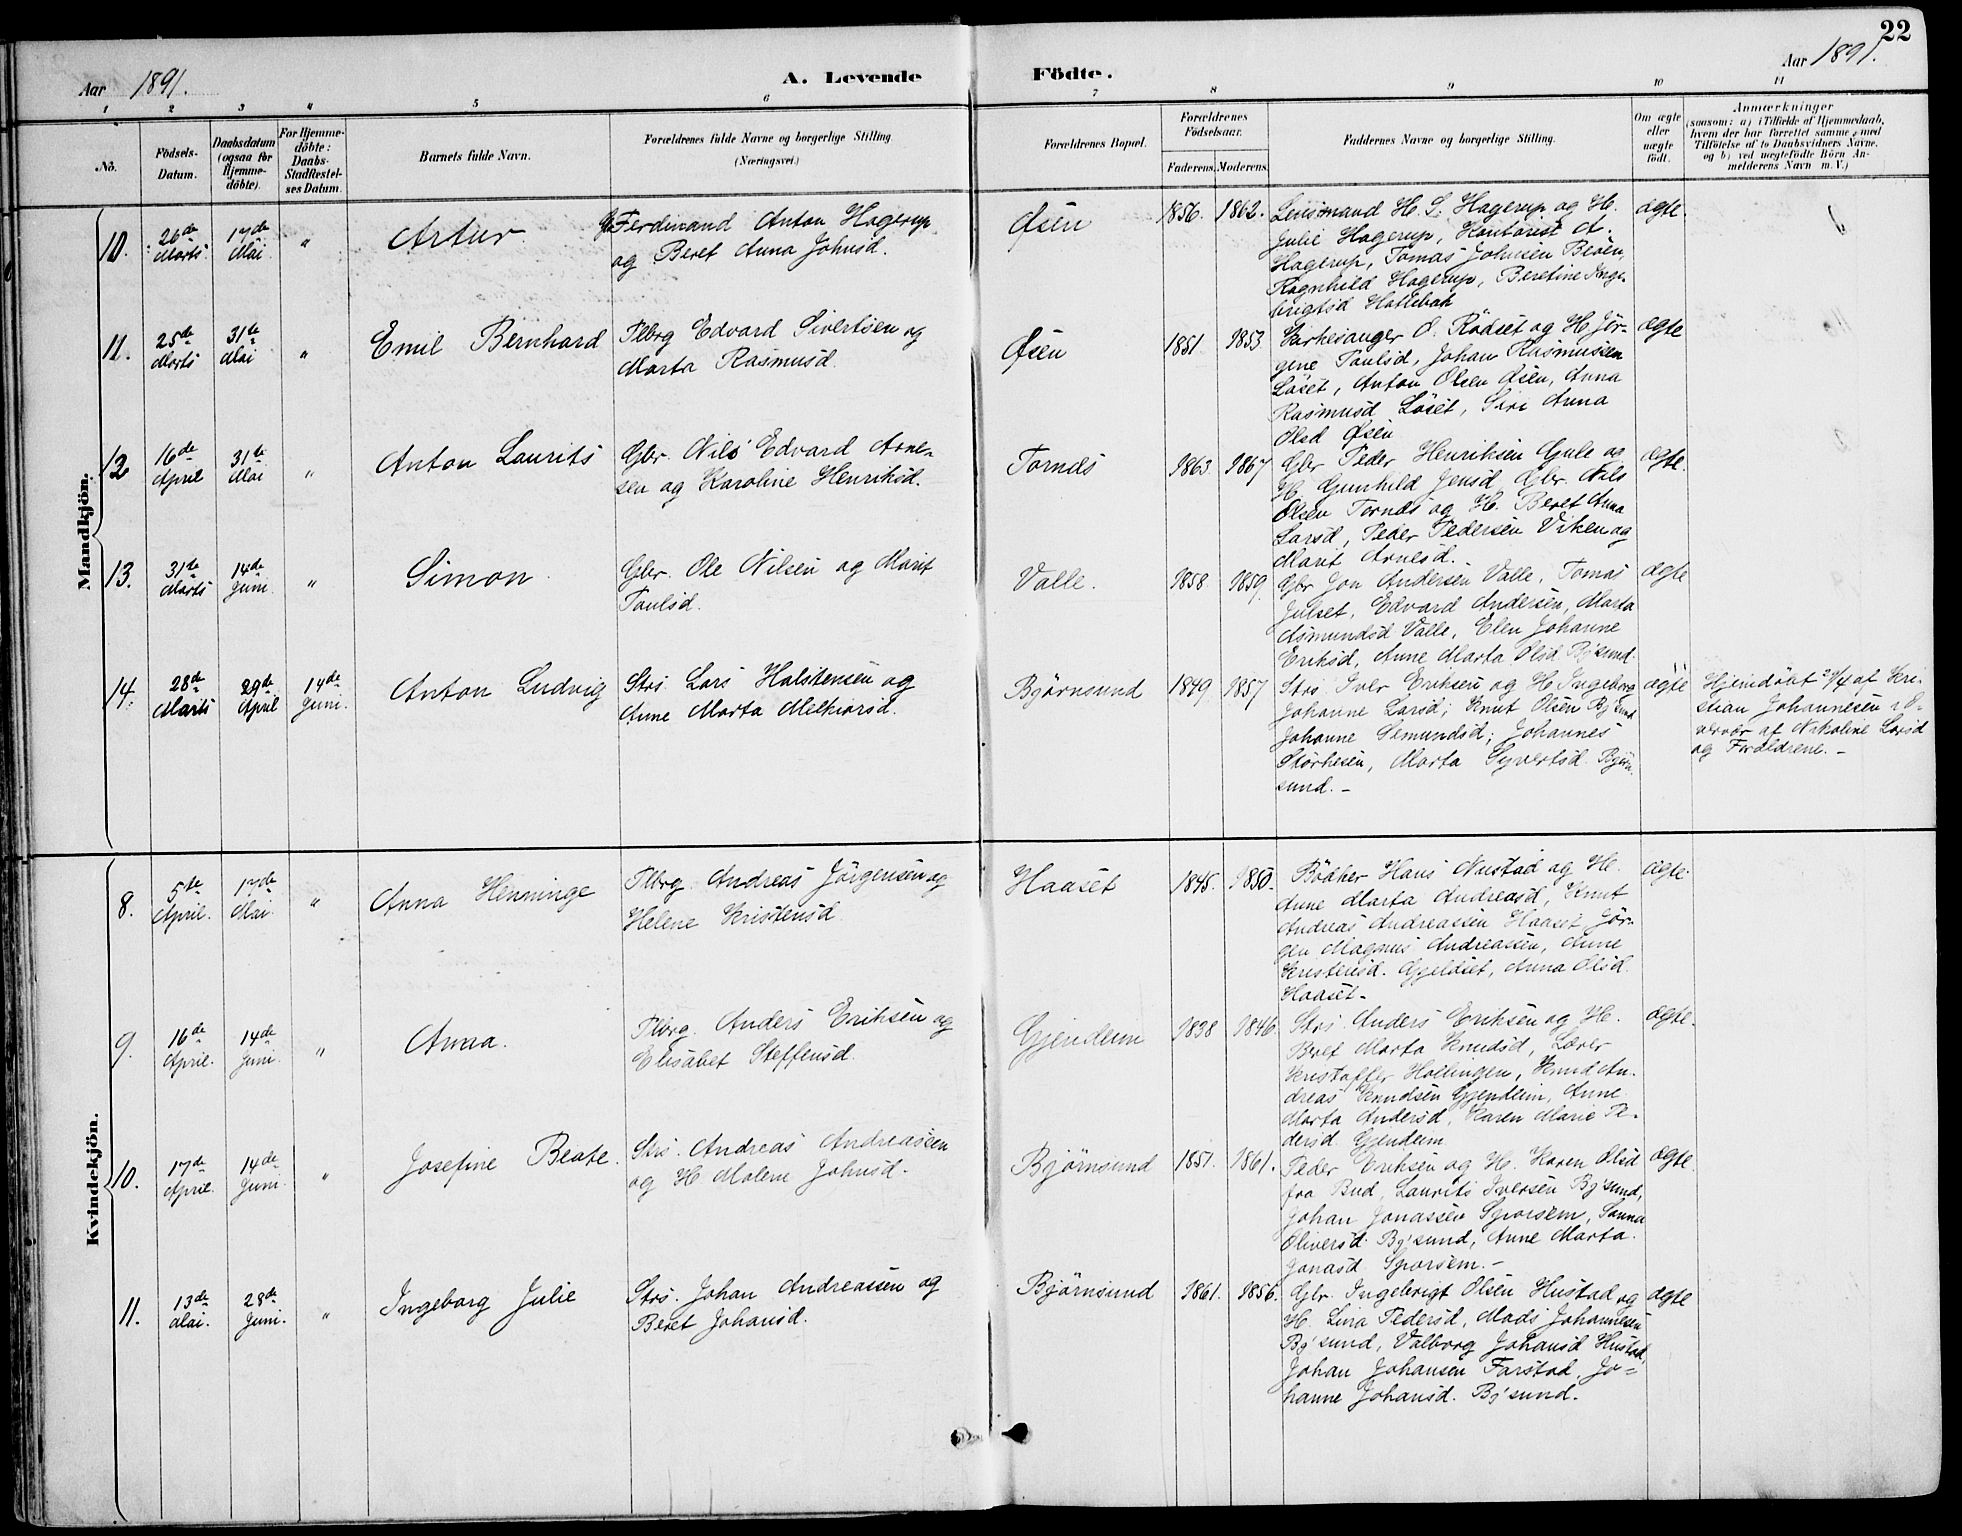 22
Aar 1891.
A. Levende
Födte.
Aar 1891.
1 2 3 4 5 6 7 8 9 10 11
No.
Födsels-
Datum.
Daabsdatum
(ogsaa for
Hjemme-
döbte).
For Hjemme-
döbte:
Daabs-
Stadfæstel-
ses Datum.
Barnets fulde Navn.
Forældrenes fulde Navne og borgerlige Stilling
(Næringsvei.)
Forældrenes Bopæl.
Forældrenes
Födselsaar.
Faderens. Moderens.
Faddernes Navne og borgerlige Stilling.
Om ægte
eller
uægte
födt.
Anmærkninger
(saasom: a) i Tilfælde af Hjemmedaab,
hvem der har forrettet samme, med
Tilföielse af to Daabsvidners Navne,
og b) ved uægtefödte Börn An-
melderens Navn m. V.)
Mandkjön.
10.
26de
Marts
17de
Mai
"
Artur
Ferdinand Anton Hagerup
og Beret Anna Johnsd.
Øsen
1856. 1862.
Lensmand H. S. Hagerup og H.
Julie Hagerup, Kontorist A.
Hagerup, Tomas Johnsen Beøen,
Ragnhild Hagerup, Beretine Inge-
brigtsd Hattebak
ægte.
11.
25de
Marts
31te
Mai
"
Emil Bernhard
Plbrg Edvard Sivertsen og
Marta Rasmusd.
Øsen
1851 1853
Kirkesanger O. Rødset og H Jör-
gine Paulsd, Johan Rasmussen
Löset, Anton Olsen Øsen, Anna
Rasmusd Löset, Siri Anna
Olsd Øsen
ægte
12
16de
April
31te
Mai
"
Anton Laurits
Gbr. Nils Edvard Arne-
sen og Karoline Henriksd.
Tornes
1863. 1867
Gbr Peder Henriksen Gule og
H. Gunhild Jensd, Gbr. Nils
Olsen Tornes og H. Beret Anna
Larsd, Peder Pedersen Viken og
Marit Arnesd.
ægte.
13.
31te
Marts
14de
Juni
"
Simon
Gbr. Ole Nilsen og Marit
Paulsd.
Valle.
1858 1859.
Gbr Jon Andersen Valle, Tomas
Julset, Edvard Andersen, Marta
Asmundsd Valle, Elen Johanne
Eriksd, Anne Marta Olsd Bj'sund.
ægte
14.
28de
Marts
29de
April
14de
Juni.
Anton Ludvig
Strs. Lars Halstensen og
Anne Marta Melkiorsd.
Bjørnsund
1849 1857
Strs. Iver Eriksen og H. Ingeborg
Johanne Larsd; Knut Olsen Bj'sund
Johanne Semundsd; Johannes
Storhesen, Marta Syvertsd Bjørn
sund. -
ægte
Hjemdøbt 29/4 af Kri-
stian Johannesen i O-
vervær af Nikoline Larsd
og Forældrene. -
Kvindekjön.
8.
5te
April.
17de
Mai.
"
Anna Henninge
Plbrg. Andreas Jörgensen og
Helene Kristensd.
Haaset
1845. 1850.
Bödker Hans Naustad og H.
Anne Marta Andreasd, Knut
Andreas Andreassen Haaset, Jör-
gen Magnus Andreassen, Anne
Kristensd. Gjeldset, Anna Olsd.
Haaset. -
ægte.
9.
16de
April.
14de
Juni.
"
Anna.
Plbrg. Anders Eriksen og
Elisabet Steffensd.
Gjendeim
1838 1846.
Strs. Anders Eriksen og H.
Beret Marta Knudsd, Lærer
Kristoffer Hollingen, Knud An-
dreas Knudsen Gjendeim, Anne
Marta Andersd, Karen Marie Pe-
dersd Gjendeim
ægte.
10.
17de
April.
14de
Juni.
"
Josefine Beate.
Strs. Andreas Andreassen
og H Malene Johnsd.
Bjørnsund
1851. 1861.
Peder Eriksen og H. Karen Olsd
fra Bud, Laurits Iversen Bj'sund,
Johan Jonassen Sporsem, Sanna
Oliversd. Bj'sund, Anne Marta
Jonasd Sporsem. -
ægte
11.
13de
Mai.
28de
Juni.
"
Ingeborg Julie
Strs. Johan Andreassen og
Beret Johansd.
Bjørnsund
1861. 1856.
Gbr. Ingebrigt Olsen Hustad og
H. Lina Pedersd, Mads Johannesen
Bj'sund, Valborg Johansd Hustad,
Johan Johansen Farstad, Jo-
hanne Johansd. Bj'sund.
ægte